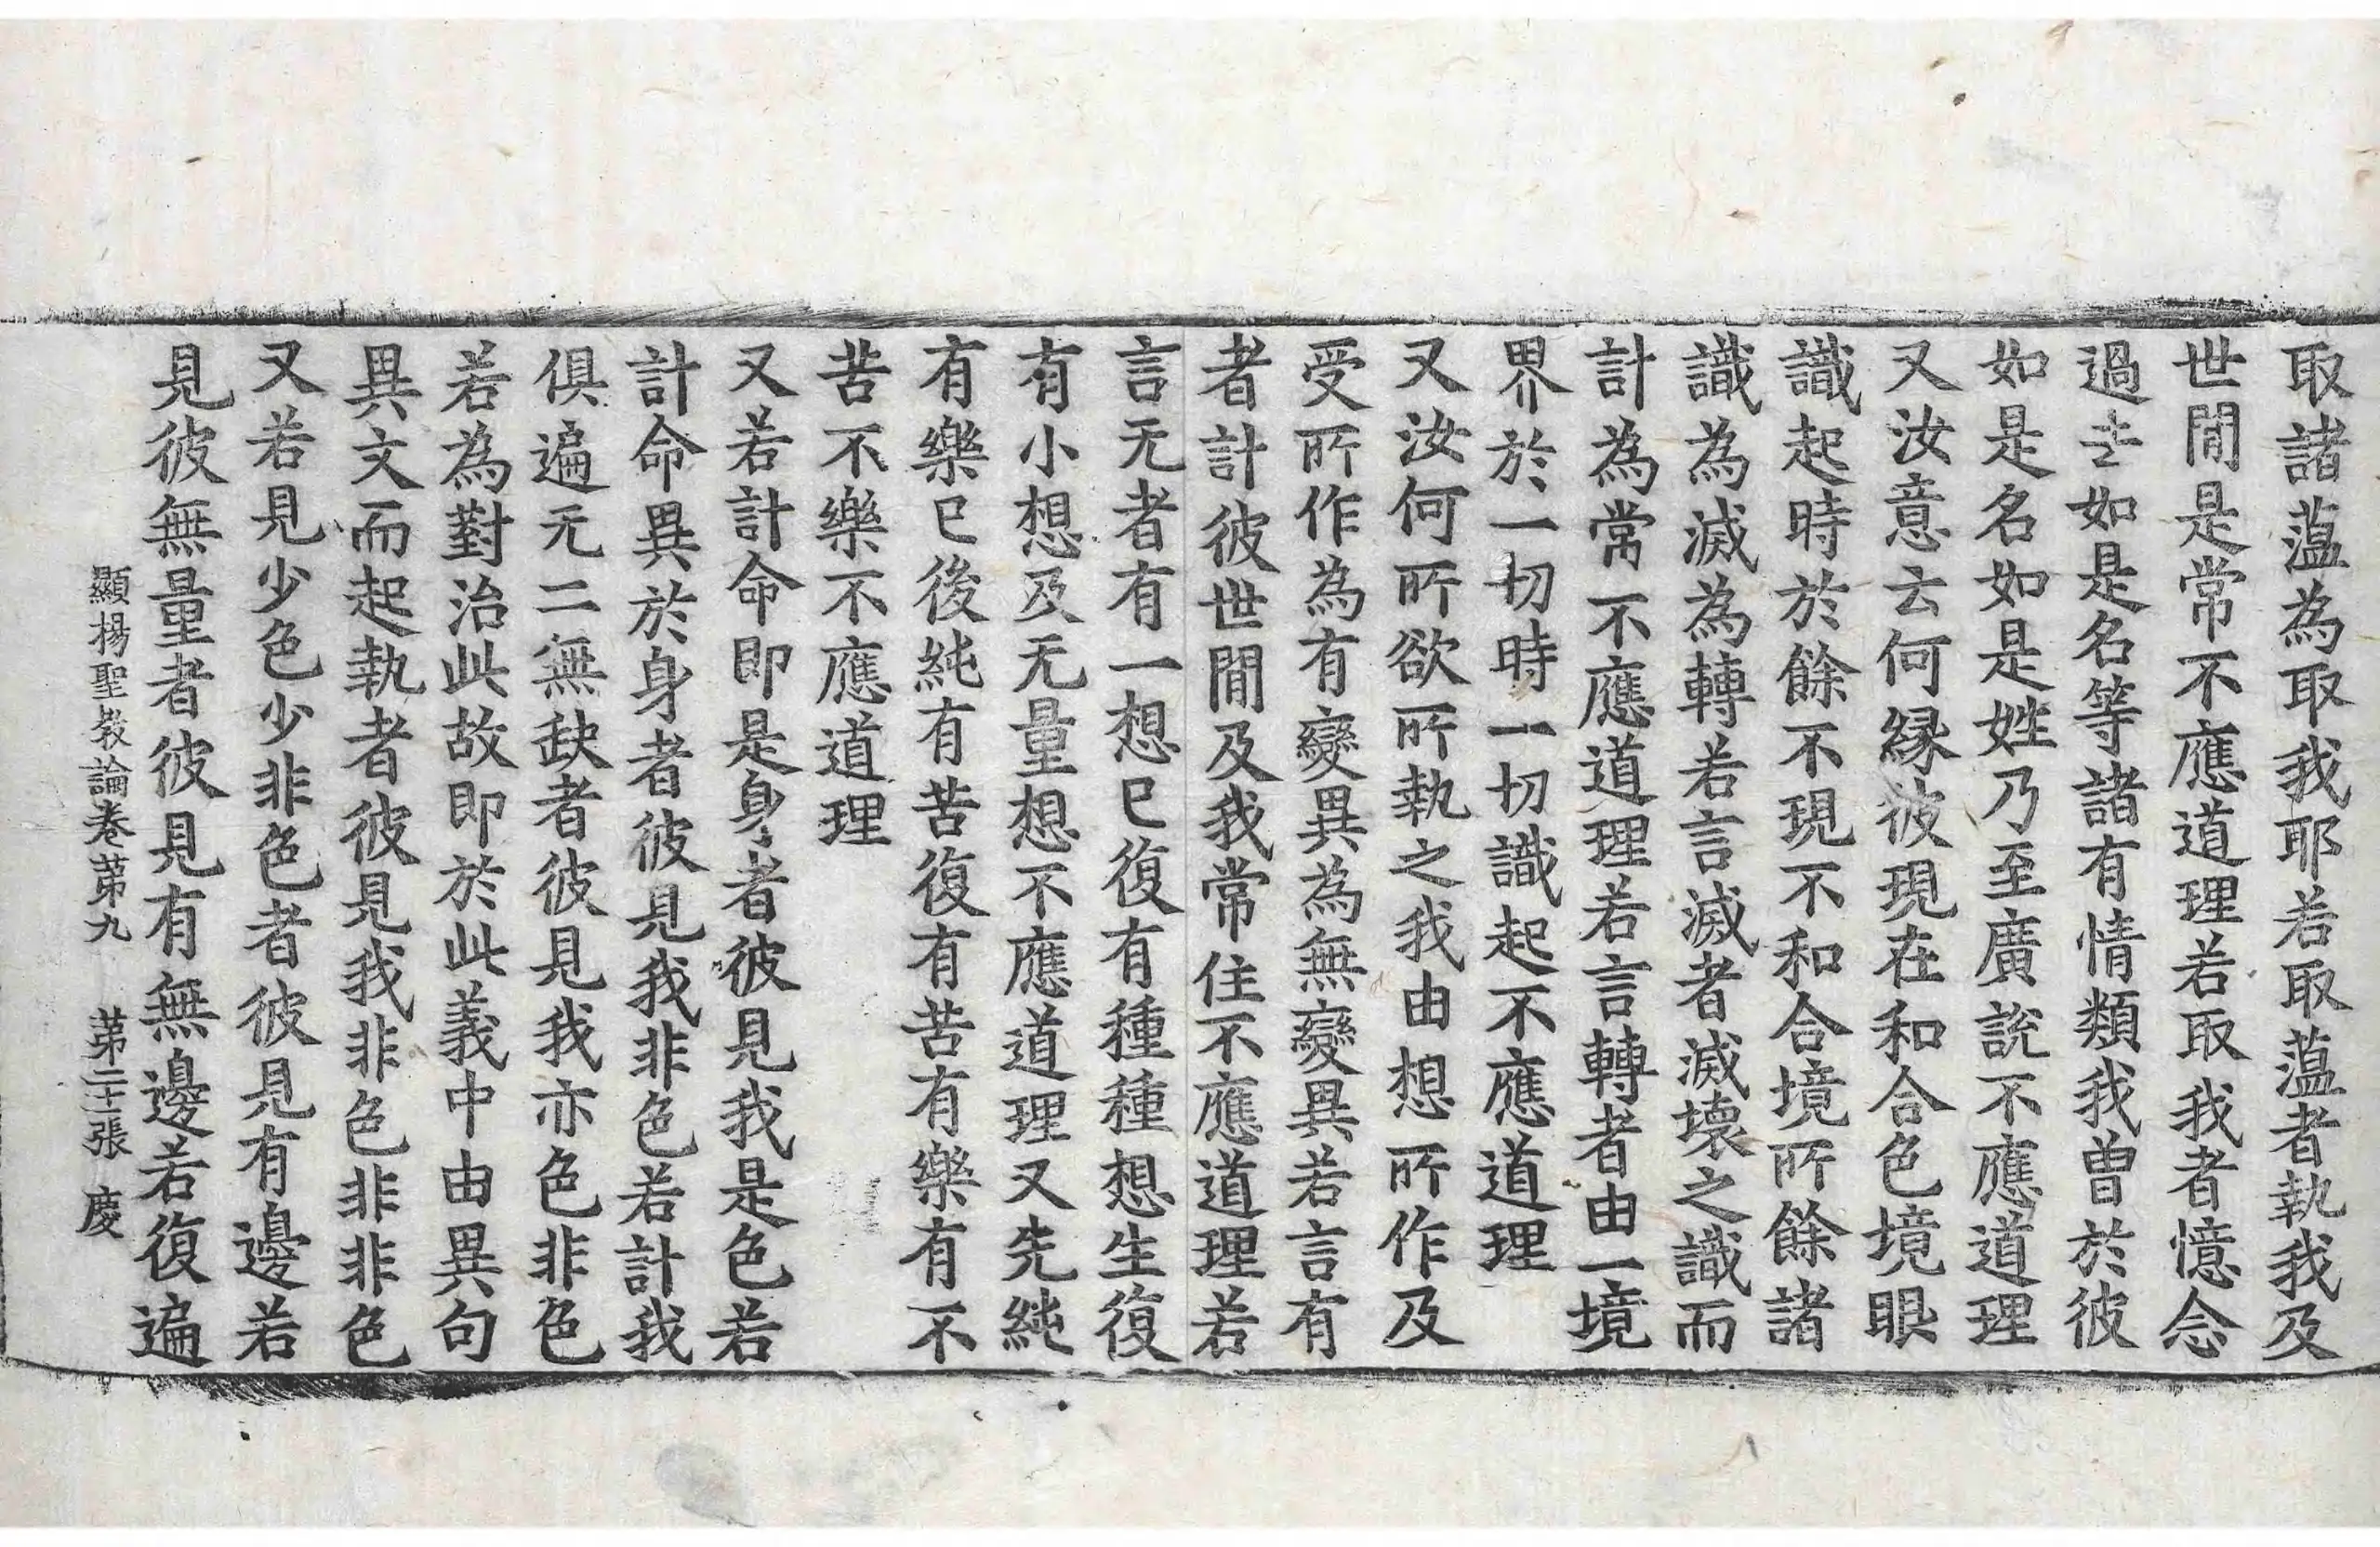 取諸薀為取我耶若取薀者執我及
世閒是常不應道理若取我者憶念
過去如是名等諸有情類我曾於彼
如是名如是姓乃至廣說不應道理
又汝意云何緣彼現在和合色境眼
識起時於餘不現不和合境所餘諸
識為滅為轉若言滅者滅壞之識而
計為常不應道理若言轉者由一境
界於一切時一切識起不應道理
又汝何所欲所執之我由想所作及
受所作為有變異為無變異若言有
者計彼世閒及我常住不應道理若
言无者有一想已復有種種想生復
有小想及无量想不應道理又先純
有樂已後純有苦復有苦有樂有不
苦不樂不應道理
又若計命即是身者彼見我是色若
計命異於身者彼見我非色若計我
俱遍无二無缺者彼見我亦色非色
若為對治此故即於此義中由異句
異文而起執者彼見我非色非非色
又若見少色少非色者彼見有邊若
見彼無量者彼見有無邊若復遍
顯揚聖教論卷第九 第二十二張 慶